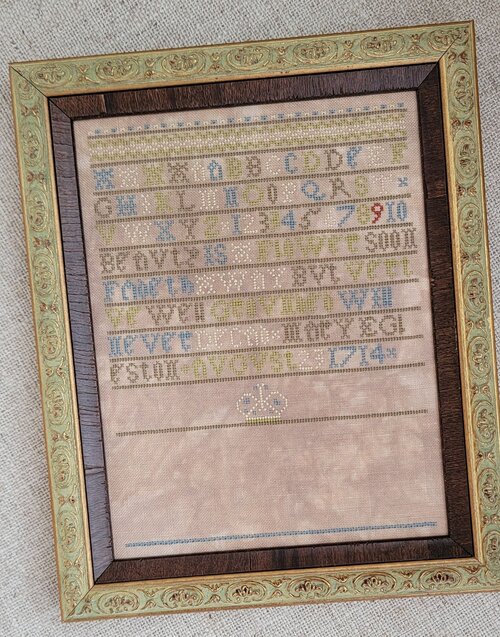 A B C D E F
G H I K L M N O P Q R S
T V W X Y Z 1 2 3 4 5 6 7 8 9 10
BeAVTy IS A FlOWer SOON
FADeth AWAY BVt Vert
Ve Well GOVerNeD Will
NeVer DeCAY MAry EGl
estON AVGVSt 23 1714